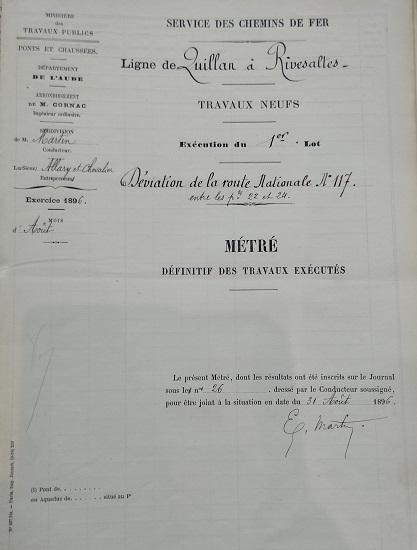 MINISTÈRE
des
TRAVAUX PUBLICS
PONTS ET CHAUSSÉES.
DÉPARTEMENT
DE L'AUDE
ARRONDISSEMENT
DE M. CORNAC
Ingénieur ordinaire.
SUBDIVISION
de M. Martin
Conducteur.
Allary et Chevalier
Entrepreneurs
Exercice 1896.
MOIS
d'Août
SERVICE DES CHEMINS DE FER
Ligne de Quillan à Rivesaltes.
TRAVAUX NEUFS
Exécution du 1er Lot
Déviation de la route Nationale N° 117.
entre les pts 22 et 24.
MÉTRÉ
DÉFINITIF DES TRAVAUX EXÉCUTÉS
Le présent Métré, dont les résultats ont été inscrits sur le Journal
sous le n° 26 , dressé par le Conducteur soussigné,
pour être joint à la situation en date du 31 Août 1896.
E. Martin
(1) Pont de. . . . . . . .
ou Aqueduc de. . . . . . . situé au Pt